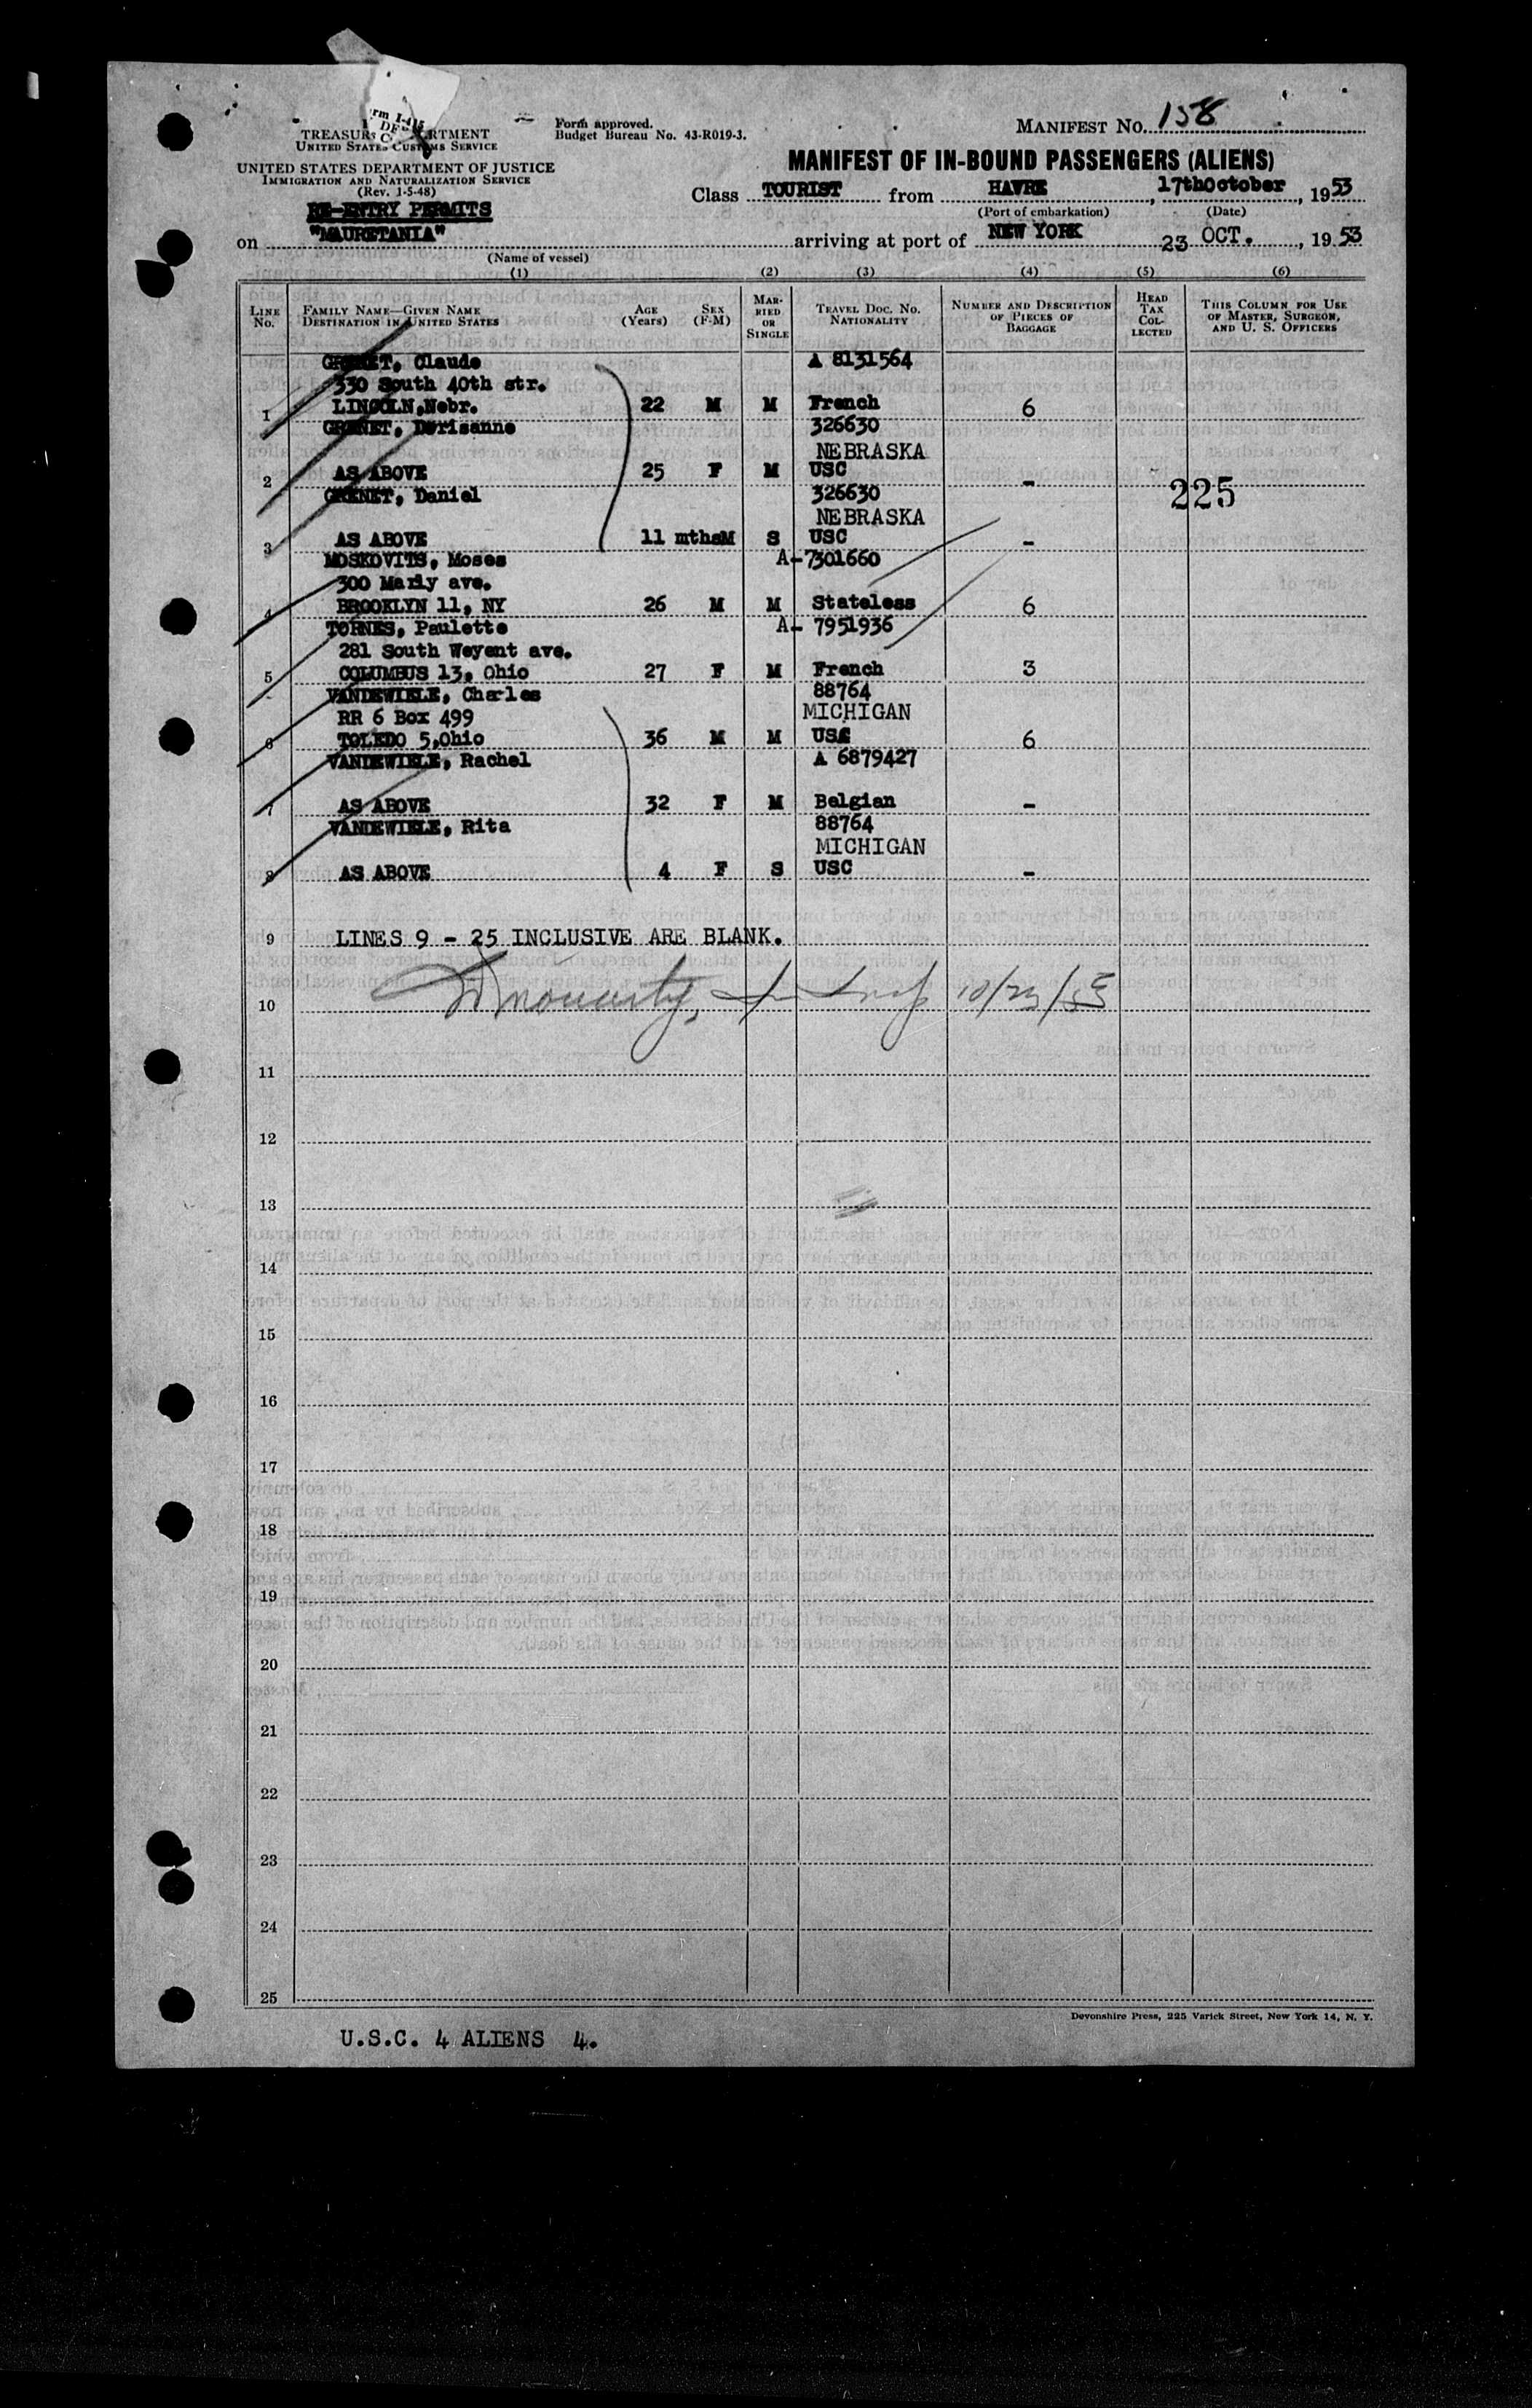 Form approved.
Budget Bureau No. 43-R019-3.
MANIFEST No. 158
TREASURY DEPARTMENT
UNITED STATES CUSTOMS SERVICE
UNITED STATES DEPARTMENT OF JUSTICE
IMMIGRATION AND NATURALIZATION SERVICE
(Rev. 1-5-48)
RE-ENTRY PERMITS
MANIFEST OF IN-BOUND PASSENGERS (ALIENS)
Class TOURIST from HAVRE, 17thOctober, 1953
(Port of embarkation) (Date)
on "MAURETANIA" arriving at port of NEW YORK 23 OCT., 19 53
(Name of vessel)
(1) (2) (3) (4) (5) (6)
LINE No. FAMILY NAME—GIVEN NAME DESTINATION IN UNITED STATES AGE (Years) SEX (F-M) MARRIED OR SINGLE TRAVEL DOC. No. NATIONALITY NUMBER AND DESCRIPTION OF PIECES OF BAGGAGE HEAD TAX COLLECTED THIS COLUMN FOR USE OF MASTER, SURGEON, AND U. S. OFFICERS
GRENET, Claude A 8131564
330 South 40th str.
1 LINCOLN,Nebr. 22 M M French 6
GRENET, Dorisanne 326630
NEBRASKA
2 AS ABOVE 25 F M USC -
GRENET, Daniel 326630
225
NEBRASKA
3 AS ABOVE 11 mths M S USC -
MOSKOVITS, Moses A-7301660
300 Marly ave.
4 BROOKLYN 11, NY 26 M M Stateless 6
TORNES, Paulette A- 7951936
281 South Weyent ave.
5 COLUMBUS 13, Ohio 27 F M French 3
VANDEWIELE, Charles 88764
RR 6 Box 499 MICHIGAN
6 TOLEDO 5,Ohio 36 M M USC 6
VANDEWIELE, Rachel A 6879427
7 AS ABOVE 32 F M Belgian -
VANDEWIELE, Rita 88764
MICHIGAN
8 AS ABOVE 4 F S USC -
9 LINES 9 - 25 INCLUSIVE ARE BLANK.
10 10/23/53
11
12
13
14
15
16
17
18
19
20
21
22
23
24
25
Devonshire Press, 225 Varick Street, New York 14, N. Y.
U.S.C. 4 ALIENS 4.